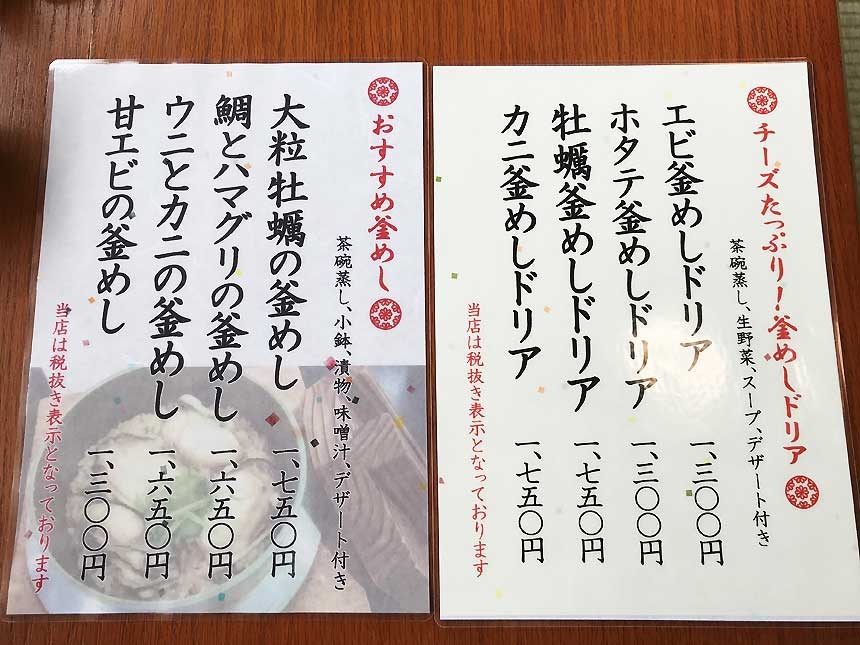 チーズたっぷり！釜めしドリア
茶碗蒸し、生野菜、スープ、デザート付き
エビ釜めしドリア 一、三〇〇円
ホタテ釜めしドリア 一、三〇〇円
牡蠣釜めしドリア 一、七五〇円
カニ釜めしドリア 一、七五〇円
当店は税抜き表示となっております
おすすめ釜めし
茶碗蒸し、小鉢、漬物、味噌汁、デザート付き
大粒牡蠣の釜めし 一、七五〇円
鯛とハマグリの釜めし 一、六五〇円
ウニとカニの釜めし 一、六五〇円
甘エビの釜めし 一、三〇〇円
当店は税抜き表示となっております